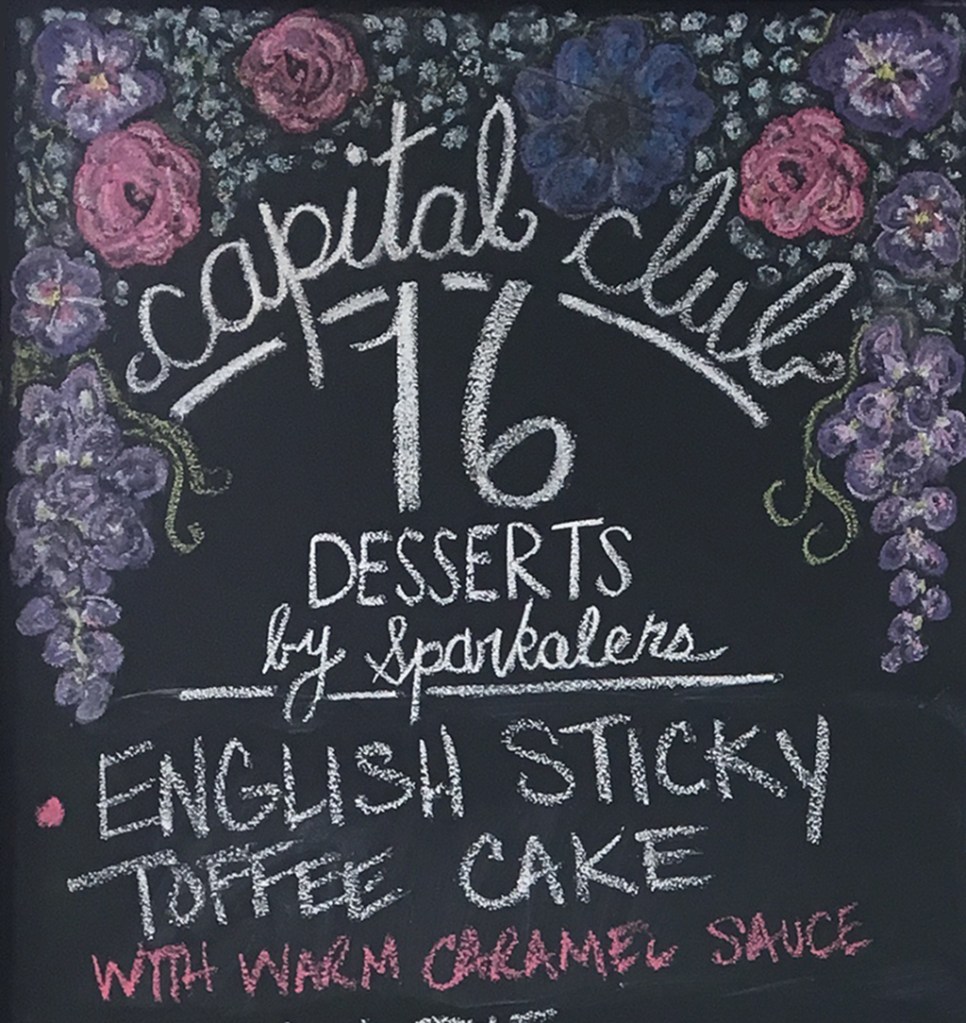 capital club
16
DESSERTS
by Sparkalers
ENGLISH STICKY
TOFFEE CAKE
WITH WARM CARAMEL SAUCE